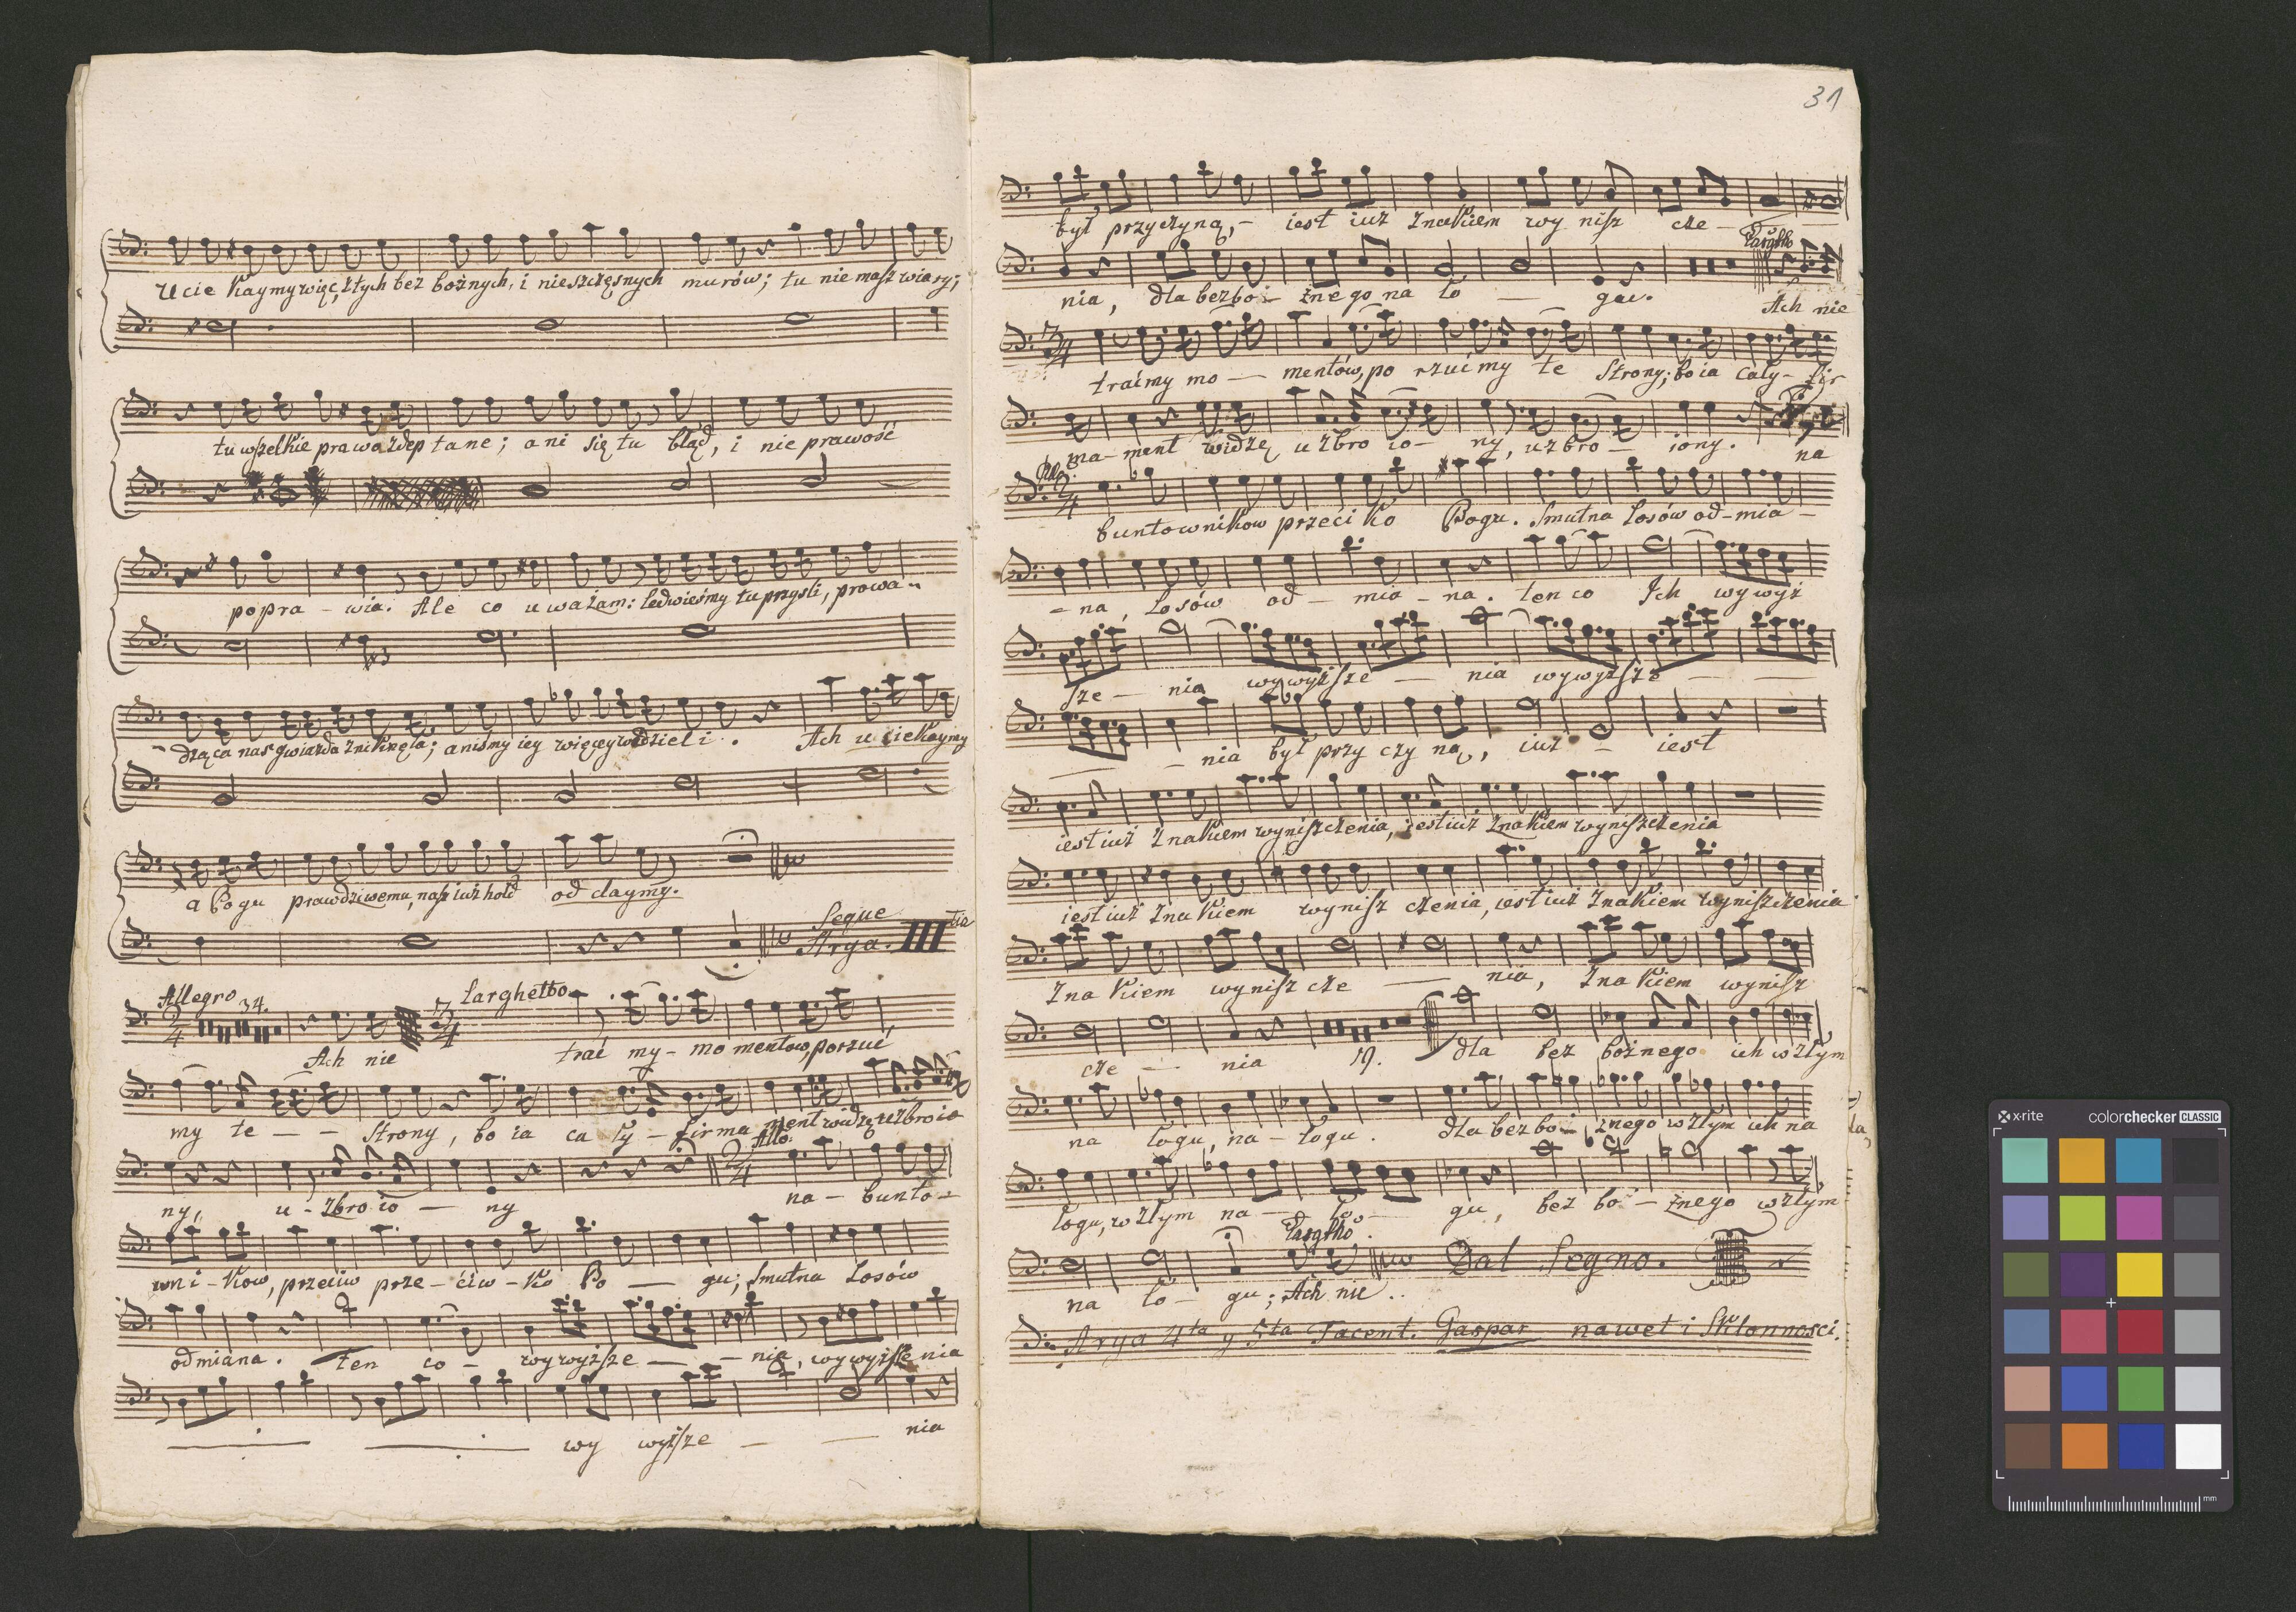 Ucie kaymy więc, złych bez bożnych, i nieszczęsnych murów; tu nie masz wiary;
tu wszelkie prawa zdep tane; ani się tu błąd, i nie prawość
popra - wia. Ale co uważam: ledwieśmy tu przyśli, prowa -
- dząca nas gwiazda zniknęła; aniśmy iey więcey widzieli. Ach uciekaymy
a Bogu prawdziwemu, nasz iuż hołd od daymy.
Segue
Arya. III tia
Allegro 34. Larghetto
2/4 3/4
Ach nie trać my - mo mentów, porzuć
my te - - Strony, bo ia ca ły - firma ment widzę uzbroio
Allo.
2/4
ny, u - zbro io - ny na - bunto -
wni - ków, przeciw prze - ciw - ko Bo - gu; Smutna Losów
odmiana. Ten co - wywyższe - - nia, wywyższenia
wy wyższe - - nia
31
był przyczyną, - iest iuż znakiem wy nisz cze -
Largtto
nia, dla bezbo - żnego na ło - gu. Ach nie
3/4
traćmy mo - mentów, po rzućmy te Strony; bo ia cały - fir
ma - ment widzę uzbro io - ny, uzbro - iony. na
Allo.
2/4
buntowników przeci ko Bogu. Smutna Losów od - mia -
- na, Losów od - mia - na. ten co Ich wywyż
sze - nia wywyższe - nia wywyższe - -
- nia był przy czy ną, iuż - iest
iest iuż znakiem wyniszczenia, iest iuż znakiem wyniszczenia
iest iuż zna kiem wynisz czenia, iest iuż znakiem wyniszczenia
Zna kiem wynisz cze - nia, zna kiem wynisz
cze - nia 19. dla bez bożnego ich w złym
na łogu, na - łogu. dla bezbo - żnego w złym ich na
łogu, w złym na - ło - gu, bez bo - żnego w złym
Largtto
na ło - gu; Ach nie.. Dal Segno.
Arya 4ta y 5ta Tacent. Gaspar nawet i Skłonności.
x-rite colorchecker CLASSIC
mm